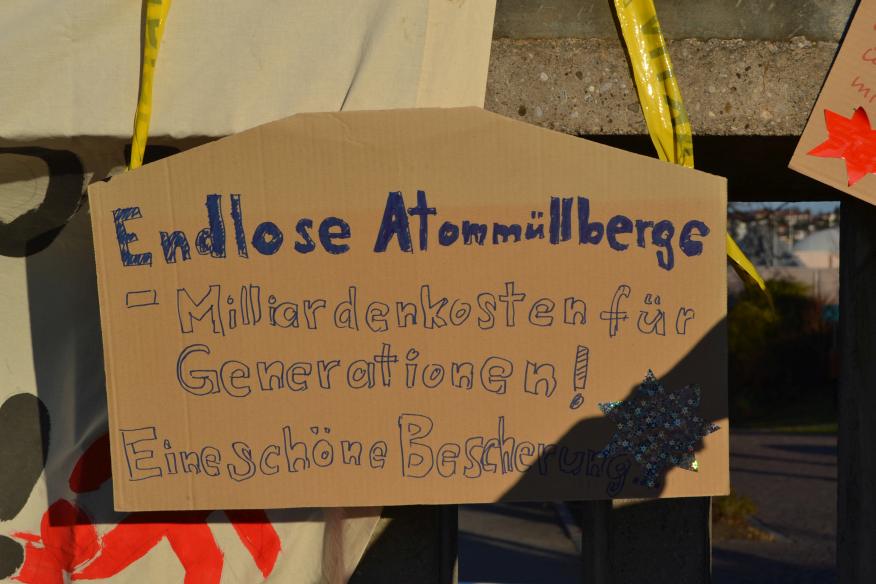 Endlose Atommüllberge
- Milliardenkosten für
Generationen!
Eine schöne Bescherung.